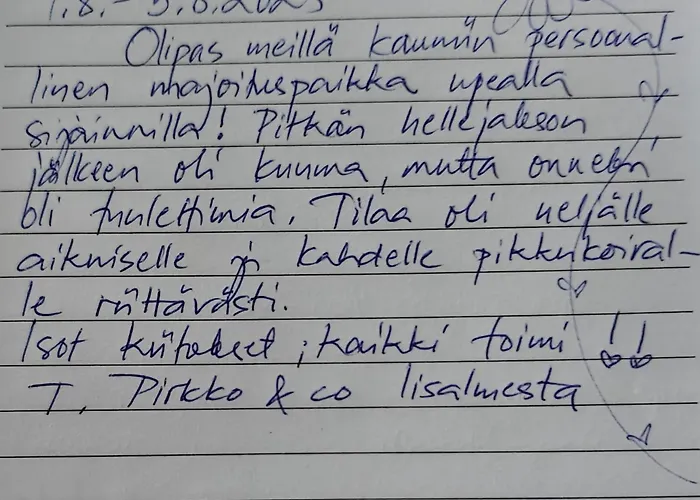 1.8.-5.8.2025
Olipas meillä kauniin persoonal-
linen majoituspaikka upealla
sijainnilla! Pitkän hellejakson
jälkeen oli kuuma, mutta onneksi
oli tuulettimia. Tilaa oli neljälle
aikuiselle ja kahdelle pikkukoiral-
le riittävästi.
Isot kiitokset ; kaikki toimi !!
T. Pirkko & co Iisalmesta